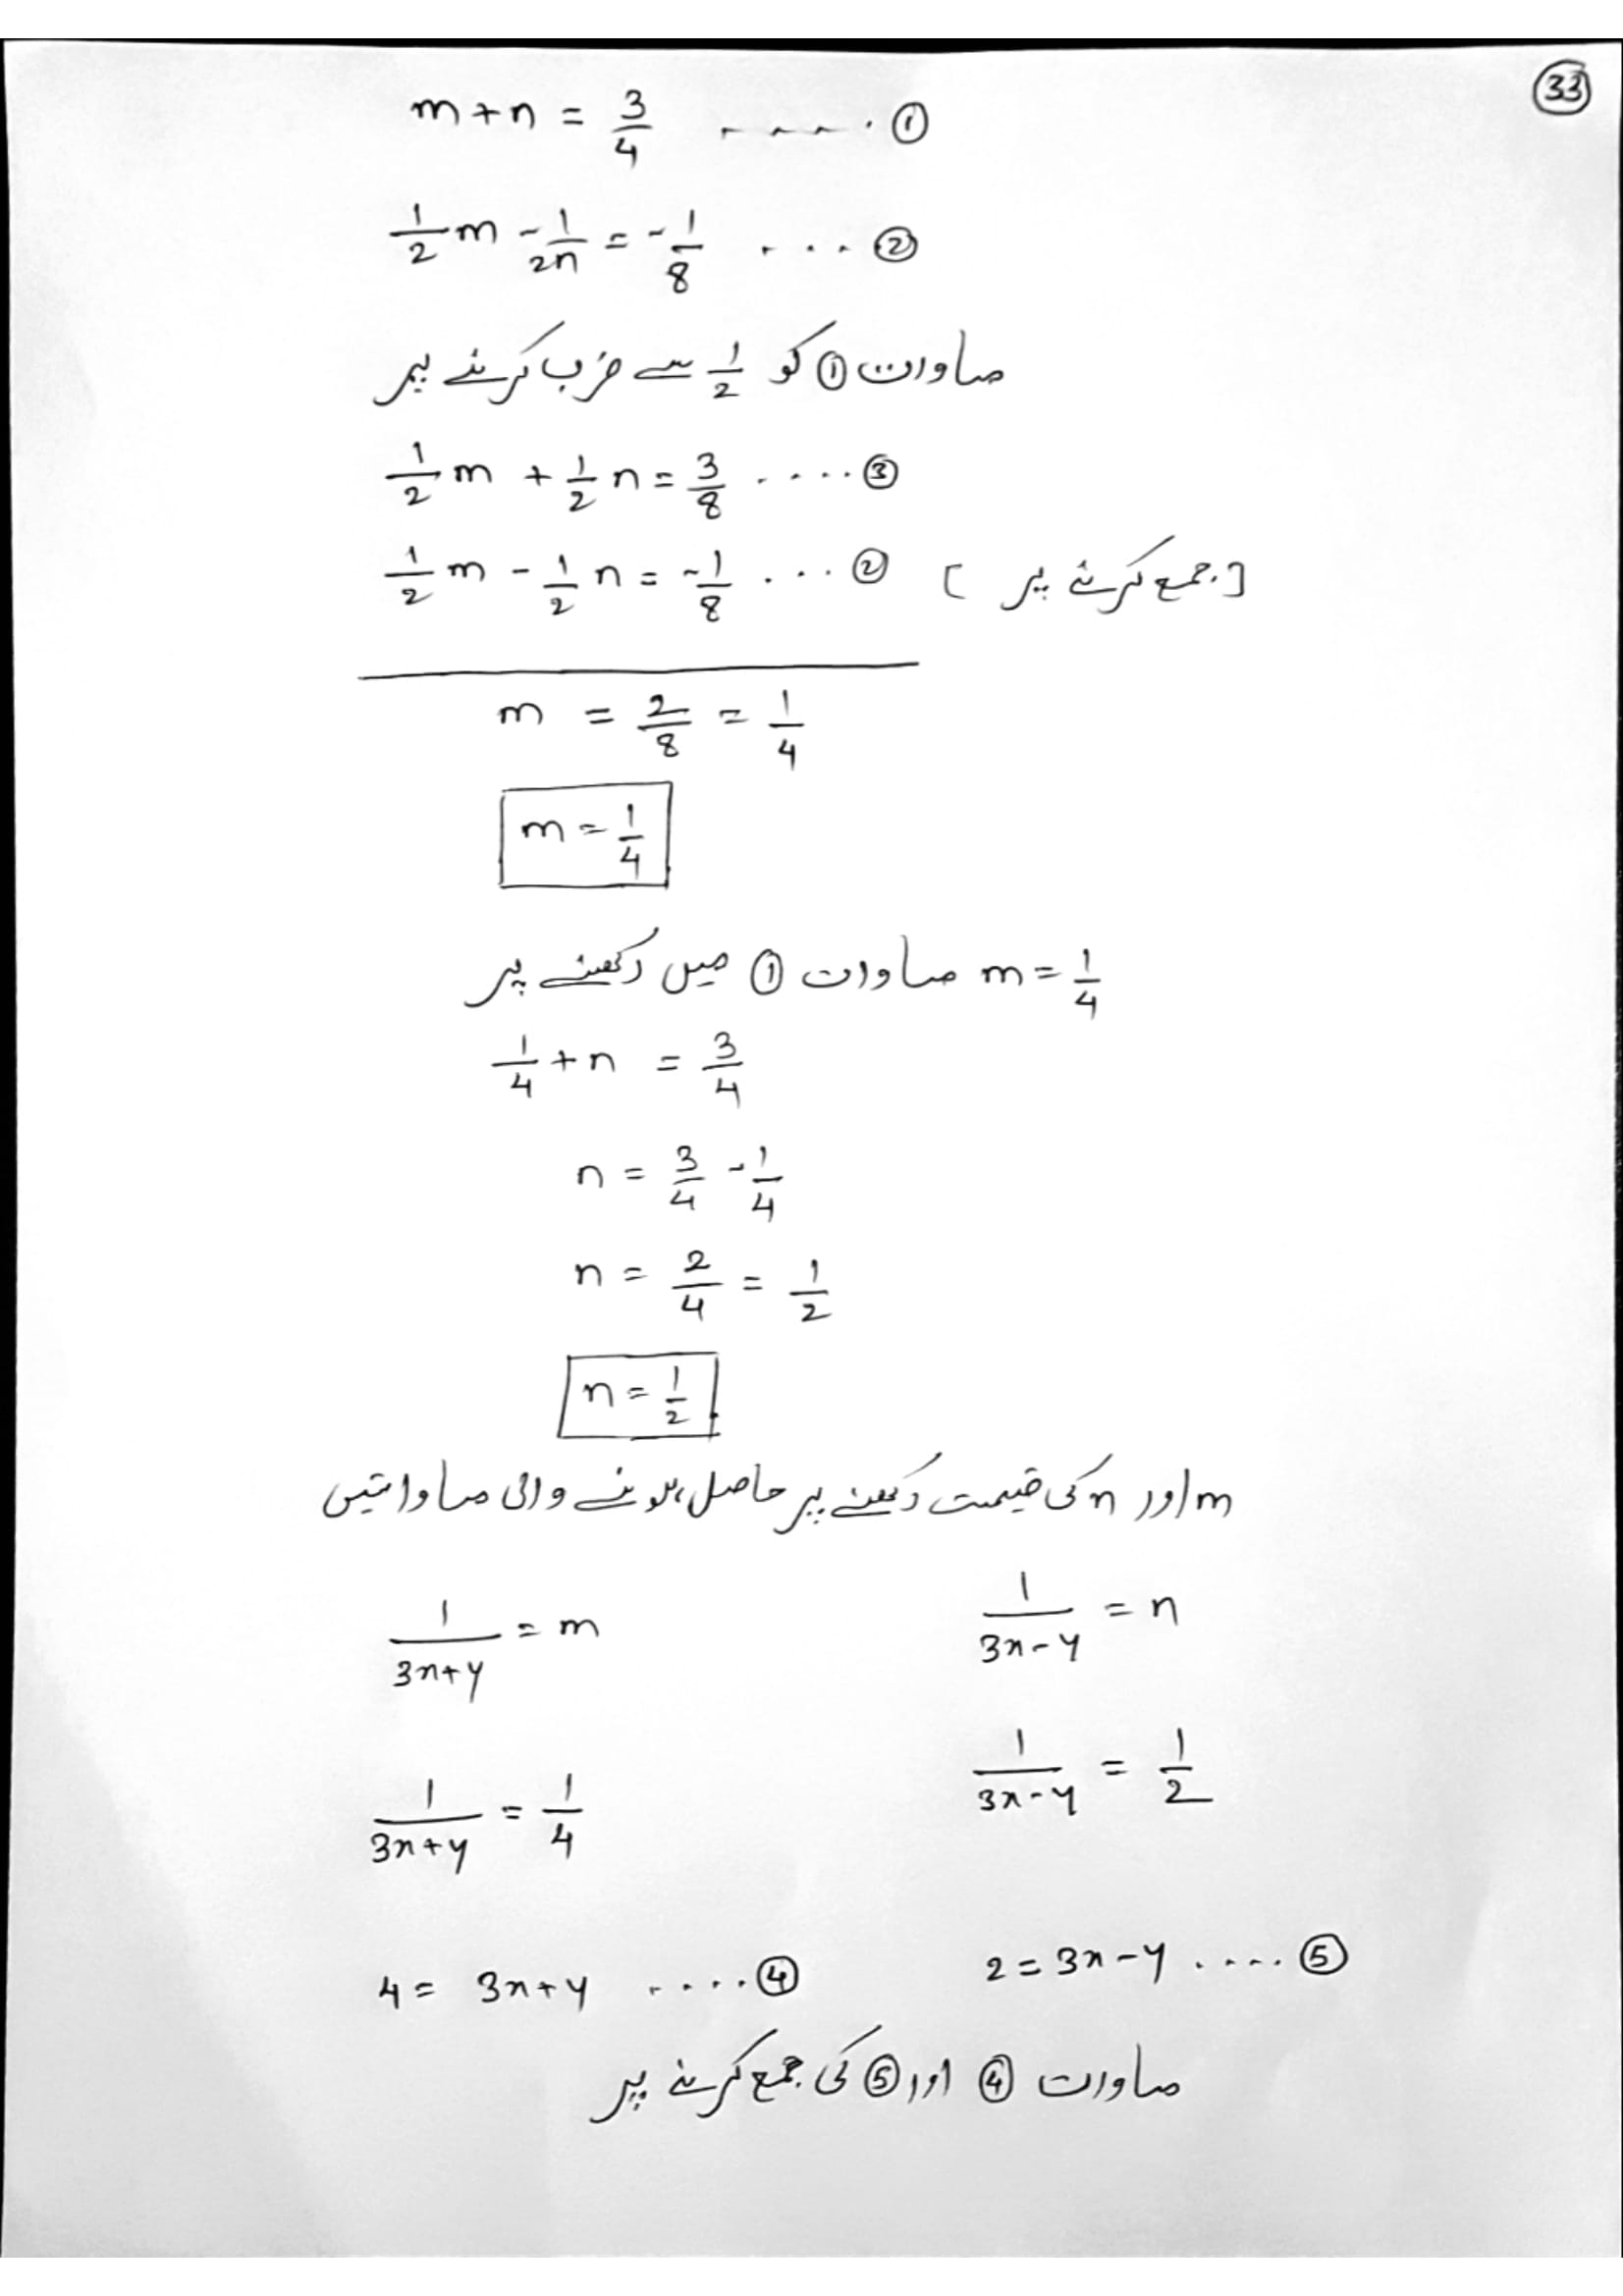 33
m + n = 3/4 ..... ①
1/2 m - 1/2n = -1/8 .... ②
مساوات ① کو 1/2 سے ضرب کرنے پر
1/2 m + 1/2 n = 3/8 ..... ③
1/2 m - 1/2 n = -1/8 .... ② [جمع کرنے پر]
m = 2/8 = 1/4
m = 1/4
m = 1/4 مساوات ① میں رکھنے پر
1/4 + n = 3/4
n = 3/4 - 1/4
n = 2/4 = 1/2
n = 1/2
m اور n کی قیمت رکھنے پر حاصل ہونے والی مساواتیں
1/(3x+y) = m 1/(3x-y) = n
1/(3x+y) = 1/4 1/(3x-y) = 1/2
4 = 3x+y ..... ④ 2 = 3x-y ..... ⑤
مساوات ④ اور ⑤ کی جمع کرنے پر